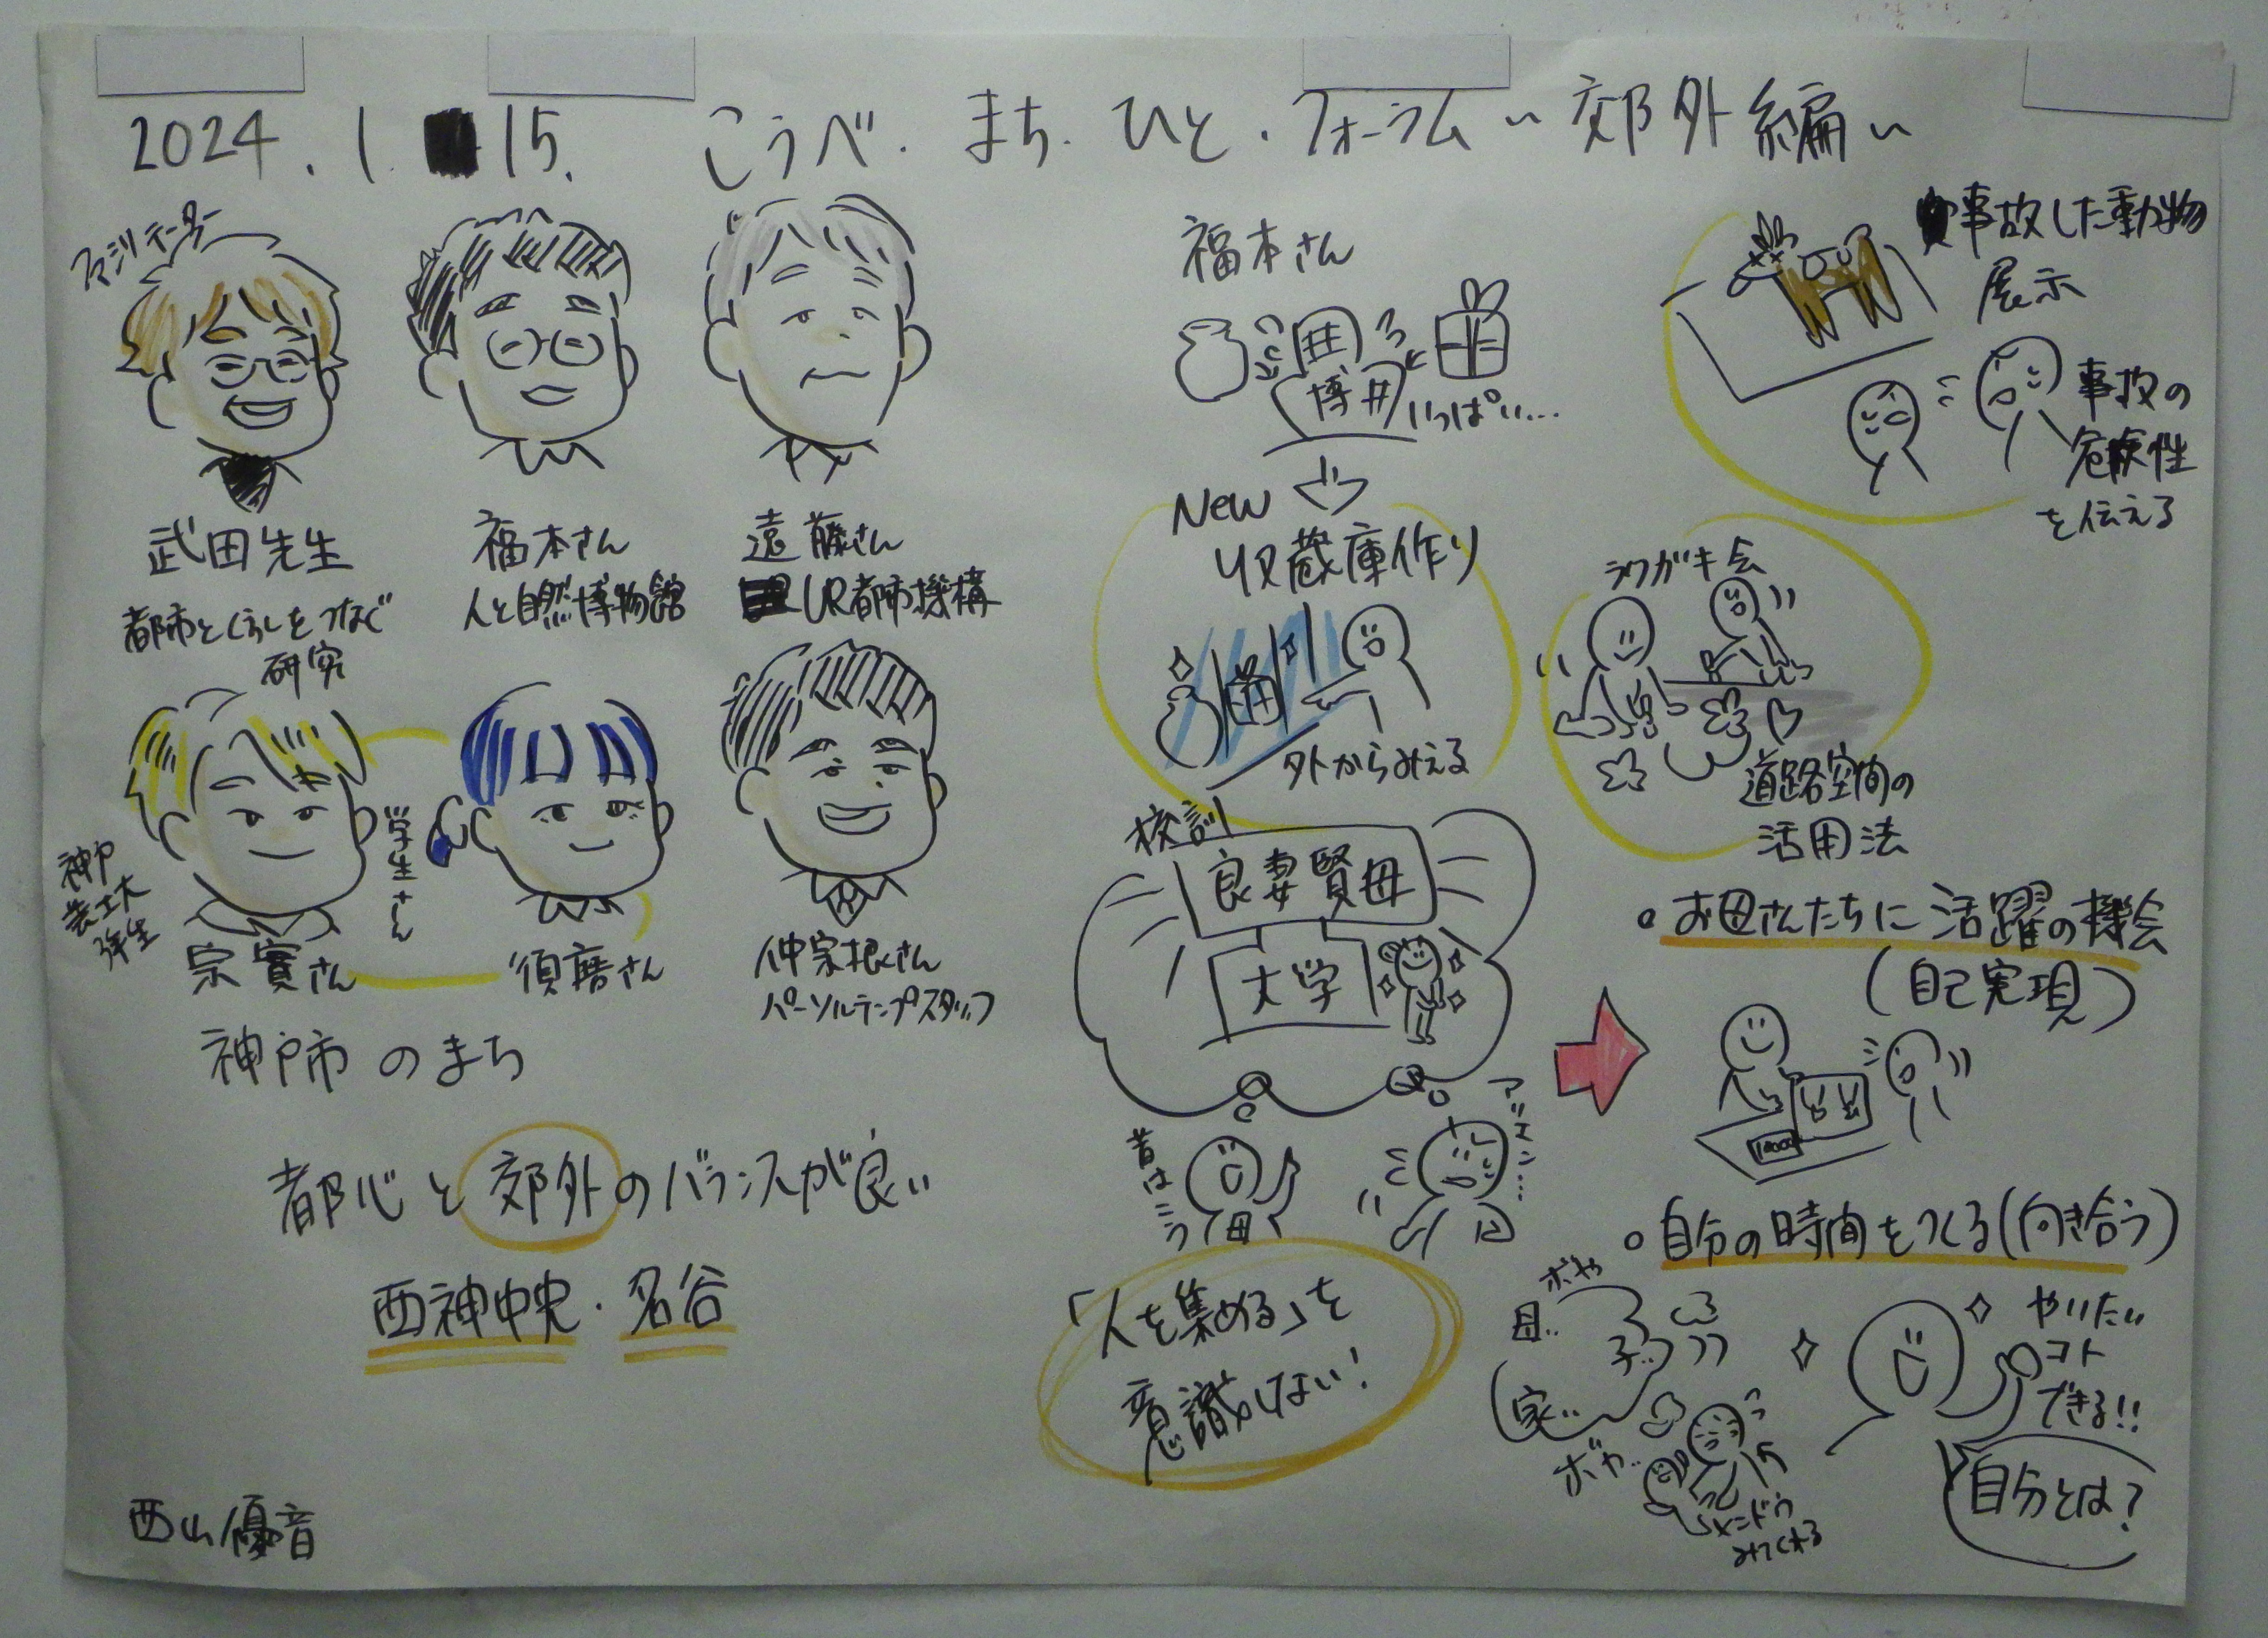 2024.1.15. こうべ.まち.ひと.フォーラム〜郊外編〜
ファシリテーター
武田先生
都市とくらしをつなぐ
研究
福本さん
人と自然博物館
遠藤さん
UR都市機構
神戸
芸工大
学生さん
宗實さん
須磨さん
仲宗根さん
パーソルテンプスタッフ
神戸市のまち
都心と郊外のバランスが良い
西神中央・名谷
西山優音
福本さん
博
いっぱい…
New
収蔵庫作り
外からみえる
事故した動物
展示
事故の
危険性
を伝える
ラクガキ会
道路空間の
活用法
校訓
良妻賢母
大学
昔は
こう
母
「人を集める」を
意識しない!
・お母さんたちに活躍の機会
(自己実現)
・自分の時間をつくる(向き合う)
ボヤ
母..
子..
家..
ボヤ..
メンドウ
みてくれる
やりたい
コト
できる!!
自分とは?